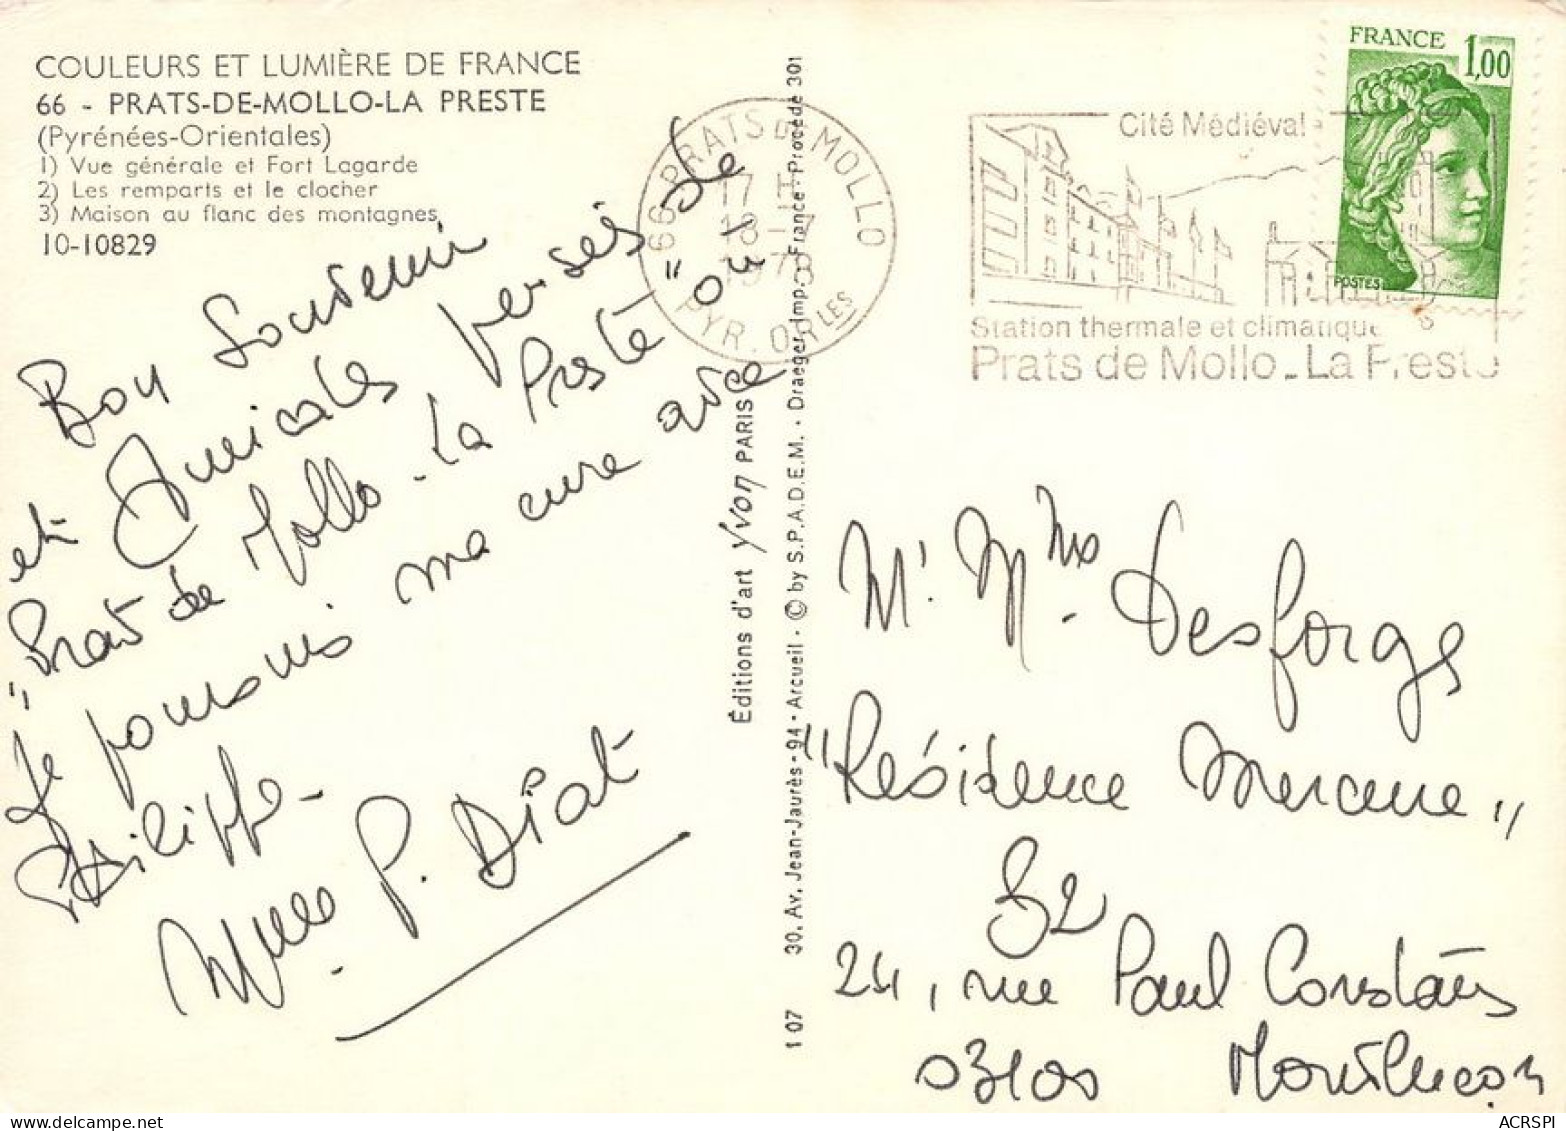 COULEURS ET LUMIÈRE DE FRANCE
66 - PRATS-DE-MOLLO-LA PRESTE
(Pyrénées-Orientales)
1) Vue générale et Fort Lagarde
2) Les remparts et le clocher
3) Maison au flanc des montagnes
10-10829
Bon Souvenir
et Amicales pensées de
"Prats de Mollo-La Preste" où
je poursuis ma cure avec
Philippe-
Mme P. Diat
Éditions d'art Yvon PARIS
107 30, Av. Jean-Jaurès - 94 - Arcueil - © by S.P.A.D.E.M. - Draeger, Imp. France - Procédé 301
66 PRATS DE MOLLO
17 H
18 - 7
1978
PYR. ORLES
Cité Médiéval
Station thermale et climatique
Prats de Mollo_La Preste
FRANCE 1,00
POSTES
Mr. Mme Desforges
"Résidence Mercure"
B2
24, rue Paul Constans
03100 Montluçon
ACRSPI